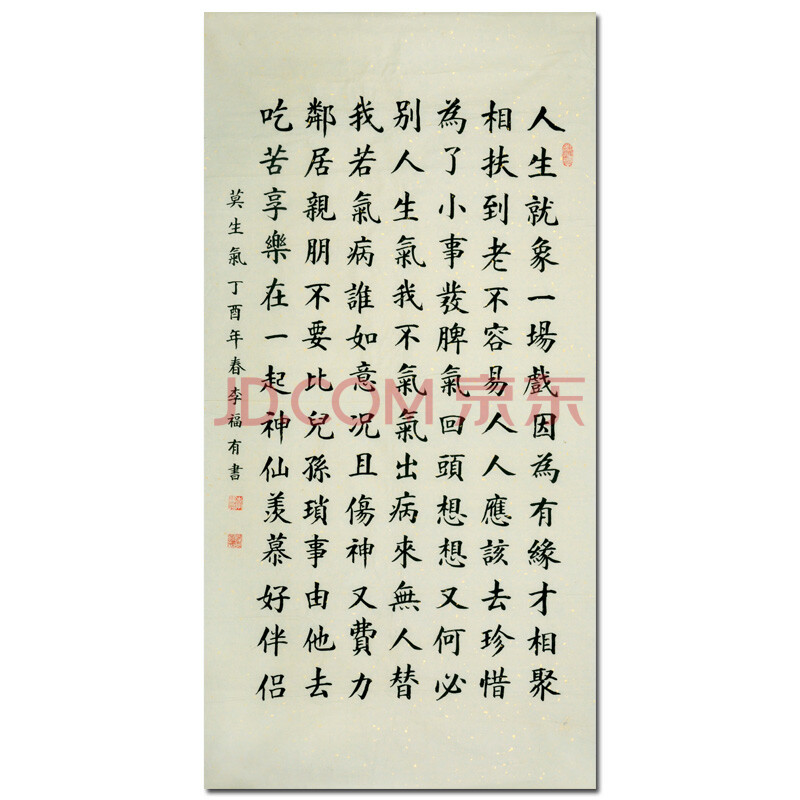 人生就象一場戲因為有緣才相聚
相扶到老不容易人人應該去珍惜
為了小事發脾氣回頭想想又何必
別人生氣我不氣氣出病來無人替
我若氣病誰如意況且傷神又費力
鄰居親朋不要比兒孫瑣事由他去
吃苦享樂在一起神仙羨慕好伴侶
莫生氣丁酉年春李福有書
JD.COM 京东